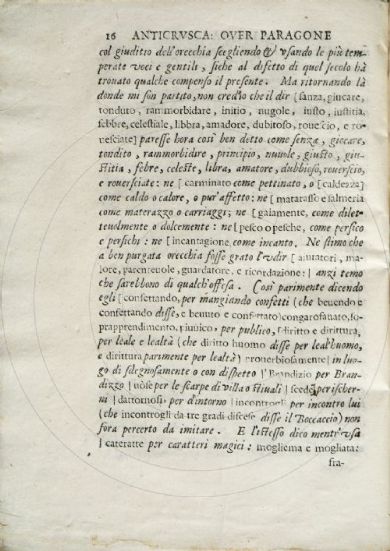 16 ANTICRVSCA: OVER PARAGONE
col giuditio dell'orecchia scegliendo & vsando le più tem-
perate voci e gentili, siche al difetto di quel secolo hà
trouato qualche compenso il presente. Ma ritornando là
donde mi son partito, non cred'io che il dir [sanza, giucare,
tonduto, rammorbidare, initio, nugole, iusto, iustitia,
febbre, celestiale, libbra, amadore, dubitoso, rouescio, e ro-
uesciate] paresse hora così ben detto come senza, giocare,
tondito, rammorbidire, principio, nuuole, giusto, giu-
stitia, febre, celeste, libra, amatore, dubbioso, rouerscio,
e rouersciate: ne [carminato come pettinato, o [caldezza]
come caldo o calore, o pur'affetto: ne [matarasso e salmeria
come materazzo o carriaggi; ne [gaiamente, come dilet-
teuolmente o dolcemente: ne [pesco o pesche, come persico
e persichi: ne [incantagione, come incanto. Ne stimo che
a ben purgata orecchia fosse grato l'vdir [aiutatori, ma-
iore, parenteuole, guardatore, e ricordazione:] anzi temo
che sarebbono di qualch'offesa. Così parimente dicendo
egli [confettando, per mangiando confetti (che beuendo e
confettando disse, e beuuto e confettato) congarofanato, so-
prapprendimento, piuuico: per publico, [diritto e dirittura,
per leale e lealtà (che diritto huomo disse per leal'huomo,
e dirittura parimente per lealtà) prouerbiosamente] in luo-
go di sdegnosamente o con dispetto [Brandizio per Bran-
dizzo [uose per le scarpe di villa o stiuali [scede, per ischer-
ni [dattornosi per d'intorno [incontrogli per incontro lui
(che incontrogli da tre gradi discese disse il Boccaccio) non
fora percerto da imitare. E l'istesso dico mentr'vsa
[cateratte per caratteri magici: mogliema e mogliata:
fra-